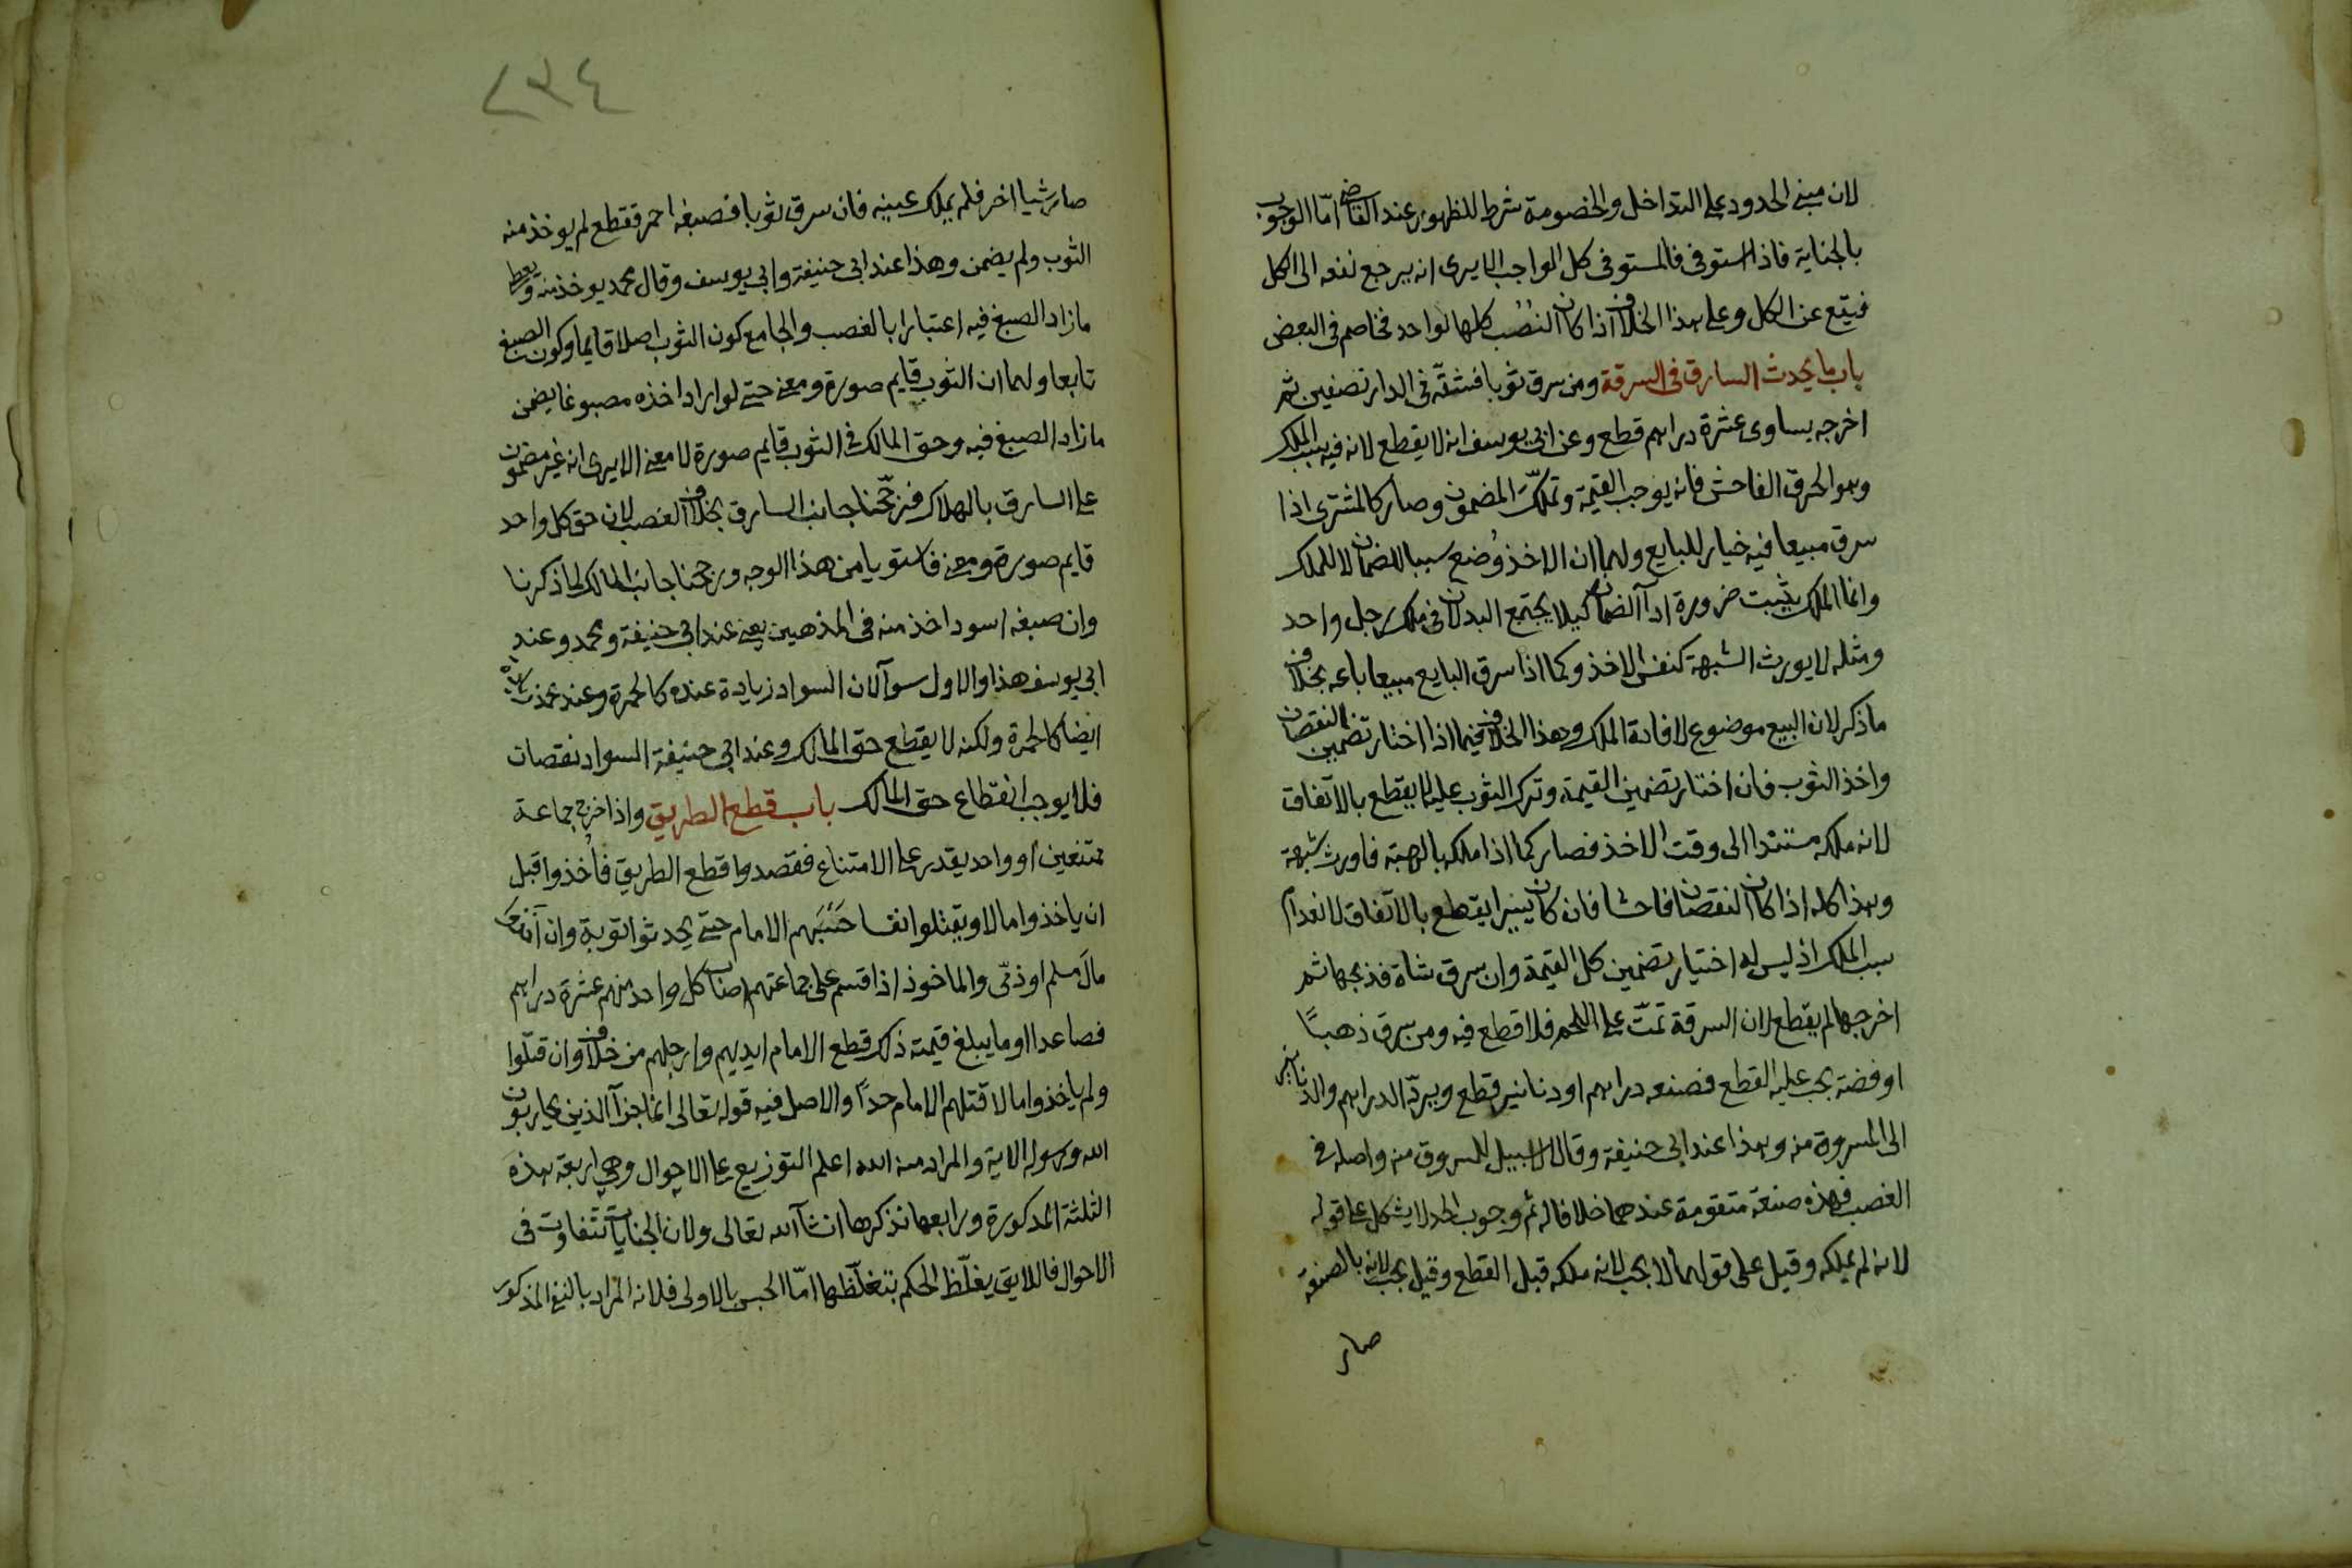 لان مبنى الحدود على التداخل والخصومة شرط للظهور عند القاضى امّا الوجوب
بالجناية فاذا استوفى فالمستوفى كل الواجب الا يرى انه يرجع نفعه الى الكل
فيقع عن الكل وعلى هذا الخلاف اذا كان النُصُب كلها لواحد فخاصم فى البعض
باب ما يحدث السارق فى السرقة ومن سرق ثوبا فشقّه فى الدار نصفين ثم
اخرجه يساوى عشرة دراهم قطع وعن ابى يوسف انه لا يقطع لانه فيه سبب الملك
وهو الخرق الفاحش فانه يوجب القيمة وتملّك المضمون وصار كالمشترى اذا
سرق مبيعا فيه خيار للبايع ولهما ان الاخذ وُضع سببا للضمان لا للملك
وانما الملك يثبت ضرورة ادآ الضمان كيلا يجتمع البدلان فى ملك رجل واحد
ومثله لا يورث الشبهة كنفس الاخذ وكما اذا سرق البايع مبيعا باعه بخلاف
ما ذكر لان البيع موضوع لافادة الملك وهذا الخلاف فيما اذا اختار تضمين النقصان
واخذ الثوب فان اختار تضمين القيمة وترك الثوب عليه لا يقطع بالاتفاق
لانه ملكه مستندا الى وقت الاخذ فصار كما اذا ملكه بالهبة فاورث شبهة
وهذا كله اذا كان النقصان فاحشا فان كان يسيرا يقطع بالاتفاق لانعدام
سبب الملك اذ ليس له اختيار تضمين كل القيمة وان سرق شاة فذبحها ثم
اخرجها لم يقطع لان السرقة تمّت على اللحم فلا قطع فيه ومن سرق ذهبًا
او فضة يجب عليه القطع فصنعه دراهم او دنانير قطع ويردّ الدراهم والدنانير
الى المسروق منه وهذا عند ابى حنيفة وقالا لا سبيل للمسروق منه واصله فى
الغصب فهذه صنعة متقومة عندهما خلافا له ثم وجوب الحد لا يشكل على قوله
لانه لم يملكه وقيل على قولهما لا يجب لانه ملكه قبل القطع وقيل يجب لانه بالصنعة
صار
٢٣٤
صار شيا اخر فلم يملك عينه فان سرق ثوبا فصبغه احمر فقطع لم يوخذ منه
الثوب ولم يضمن وهذا عند ابى حنيفة وابى يوسف وقال محمد يوخذ منه ويعطى
ما زاد الصبغ فيه اعتبارا بالغصب والجامع كون الثوب اصلا قايما وكون الصبغ
تابعا ولهما ان الثوب قايم صورة ومعنى حتى لو اراد اخذه مصبوغا يضمن
ما زاد الصبغ فيه وحق المالك فى الثوب قايم صورة لا معنى الا يرى انه غير مضمون
على السارق بالهلاك فرجّحنا جانب السارق بخلاف الغصب لان حق كل واحد
قايم صورة ومعنى فاستويا من هذا الوجه ورجحنا جانب المالك لما ذكرنا
وان صبغه اسود اخذ منه فى المذهبين يعنى عند ابى حنيفة ومحمد وعند
ابى يوسف هذا والاول سوآ لان السواد زيادة عنده كالحمرة وعند محمد زيادة
ايضا كالحمرة ولكنه لا يقطع حق المالك وعند ابى حنيفة السواد نقصان
فلا يوجب انقطاع حق المالك باب قطع الطريق واذا خرج جماعة
ممتنعين او واحد يقدر على الامتناع فقصدوا قطع الطريق فأُخذوا قبل
ان ياخذوا مالا ويقتلوا نفسا حَبَسَهم الامام حتى يحدثوا توبة وان اخذوا
مالَ مسلم او ذمّى والماخوذ اذا قسم على جماعتهم اصاب كل واحد منهم عشرة دراهم
فصاعدا او ما يبلغ قيمته ذلك قطع الامام ايديهم وارجلهم من خلاف وان قتلوا
ولم ياخذوا مالا قتلهم الامام حدًا والاصل فيه قوله تعالى انما جزآ الذين يحاربون
الله ورسوله الاية والمراد منه الله اعلم التوزيع على الاحوال وهى اربعة هذه
الثلثة المذكورة ورابعها نذكرها ان شآ الله تعالى ولان الجنايات تتفاوت فى
الاحوال فاللايق يغلّظ الحكم بتغلّظها امّا الحبس بالاولى فلانه المراد بالنفى المذكور